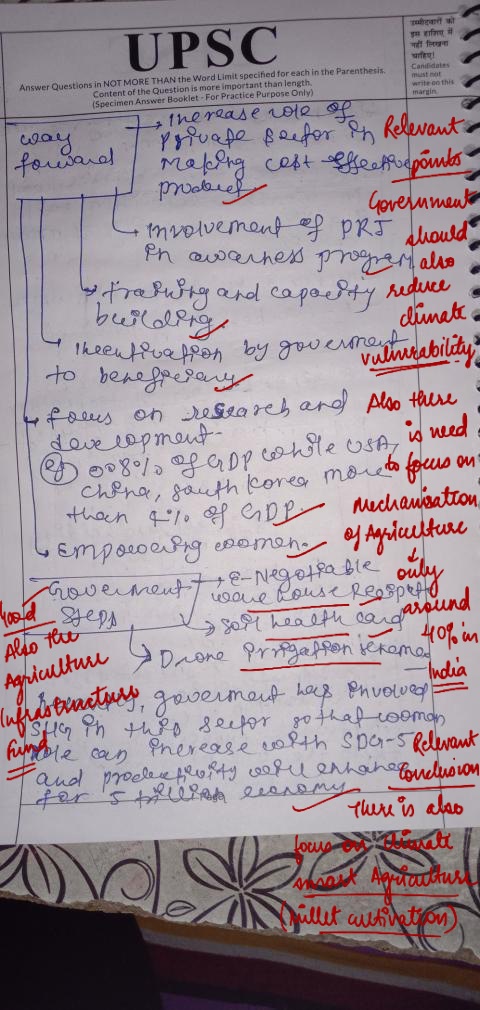 UPSC
उम्मीदवारों को
इस हाशिए में
नहीं लिखना
चाहिए!
Candidates
must not
write on this
margin.
Answer Questions in NOT MORE THAN the Word Limit specified for each in the Parenthesis.
Content of the Question is more important than length.
(Specimen Answer Booklet - For Practice Purpose Only)
way
forward
→ increase role of
private sector in
making cost effective
product
→ involvement of PRI
in awarness program
→ training and capacity
building
→ incentivation by government
to beneficiary
→ focus on research and
development
eg 0.8% of GDP while USA,
china, south korea more
than 4% of GDP.
→ Empowering women.
Goverment
steps
→ E-Negotiable
warehouse Receipt
→ soil health card
→ Drone irrigation scheme
goverment has involved
SHG in this sector so that women
role can increase with SDG-5
and productivity will enhance
for 5 trillion economy
Relevant
points
Government
should
also
reduce
climate
vulnerability
Also there
is need
to focus on
Mechanisation
of Agriculture
↓
only
around
40% in
India
Good
Also the
Agriculture
Infrastructure
Fund
Relevant
Conclusion
There is also
focus on climate
smart Agriculture
(millet cultivation)